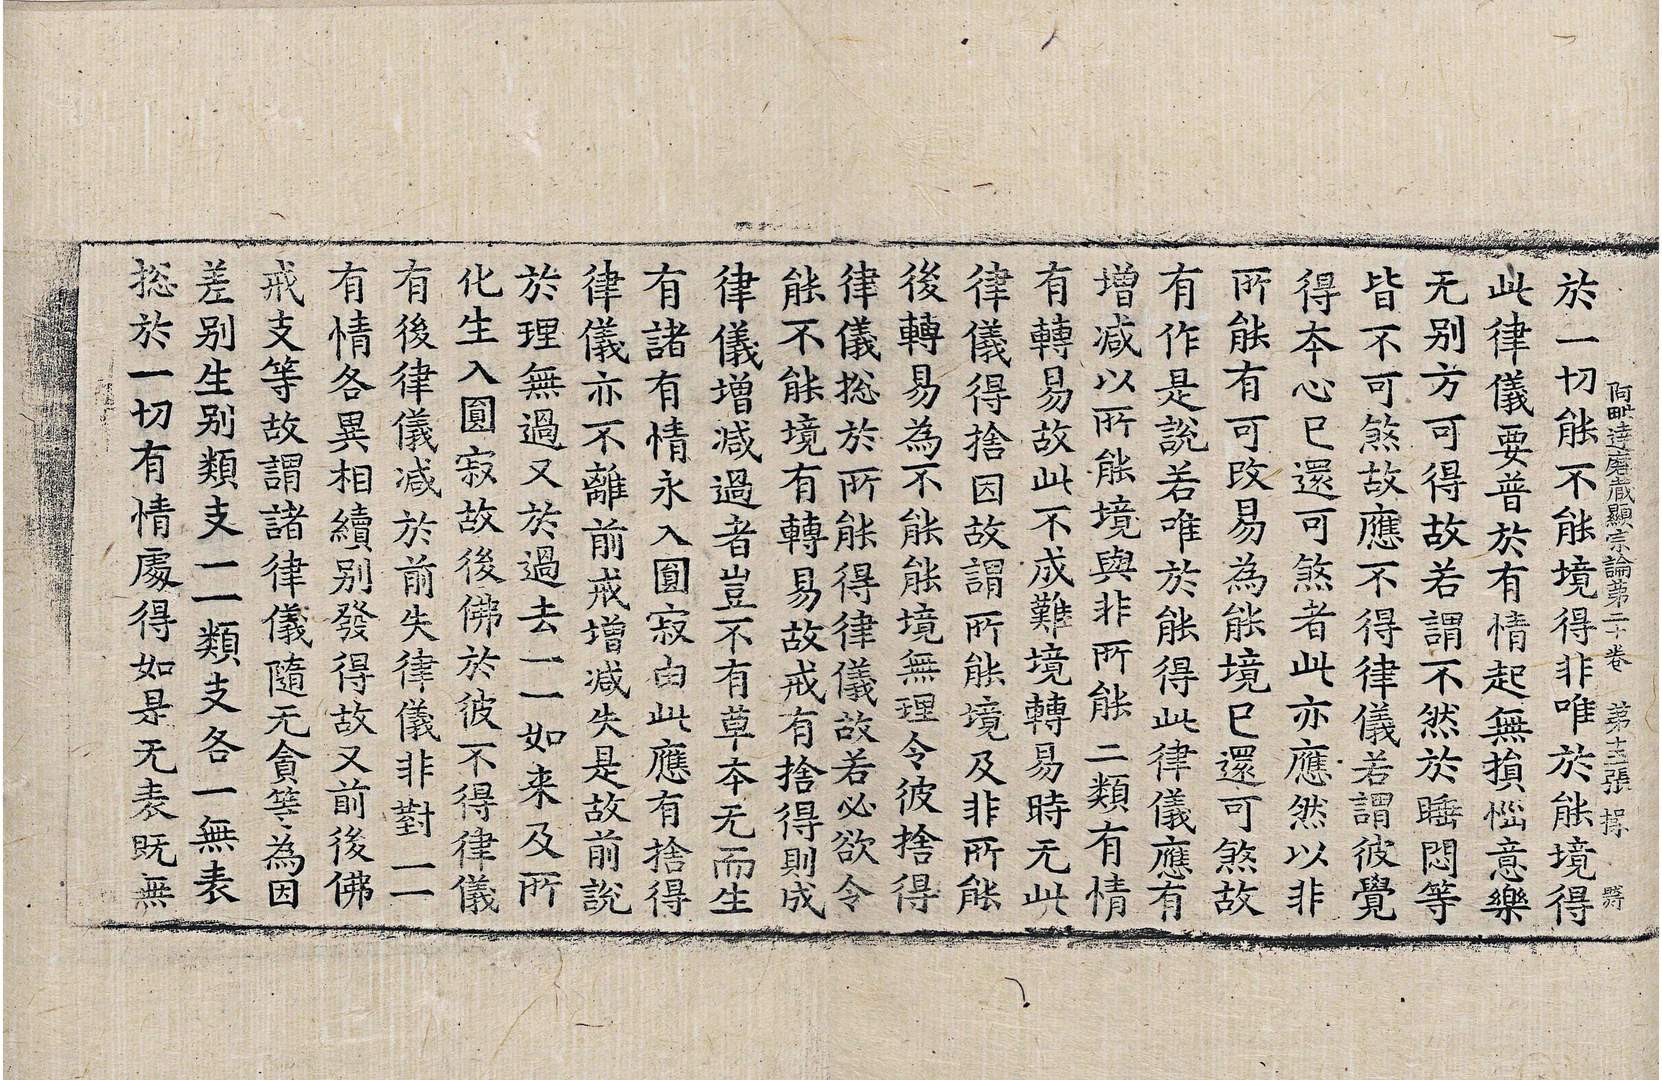 阿毗達磨藏顯宗論第二十卷 第十三張 操
於一切能不能境得非唯於能境得
此律儀要普於有情起無損惱意樂
无别方可得故若謂不然於睡悶等
皆不可煞故應不得律儀若謂彼覺
得本心已還可煞者此亦應然以非
所能有可改易為能境已還可煞故
有作是說若唯於能得此律儀應有
增减以所能境與非所能二類有情
有轉易故此不成難境轉易時无此
律儀得捨因故謂所能境及非所能
後轉易為不能能境無理令彼捨得
律儀揔於所能得律儀故若必欲令
能不能境有轉易故戒有捨得則成
律儀增减過者豈不有草本无而生
有諸有情永入圓寂由此應有捨得
律儀亦不離前戒增减失是故前說
於理無過又於過去一一如来及所
化生入圓寂故後佛於彼不得律儀
有後律儀减於前失律儀非對一一
有情各異相續别發得故又前後佛
戒支等故謂諸律儀隨无貪等為因
差别生别類支一一類支各一無表
揔於一切有情處得如是无表既無